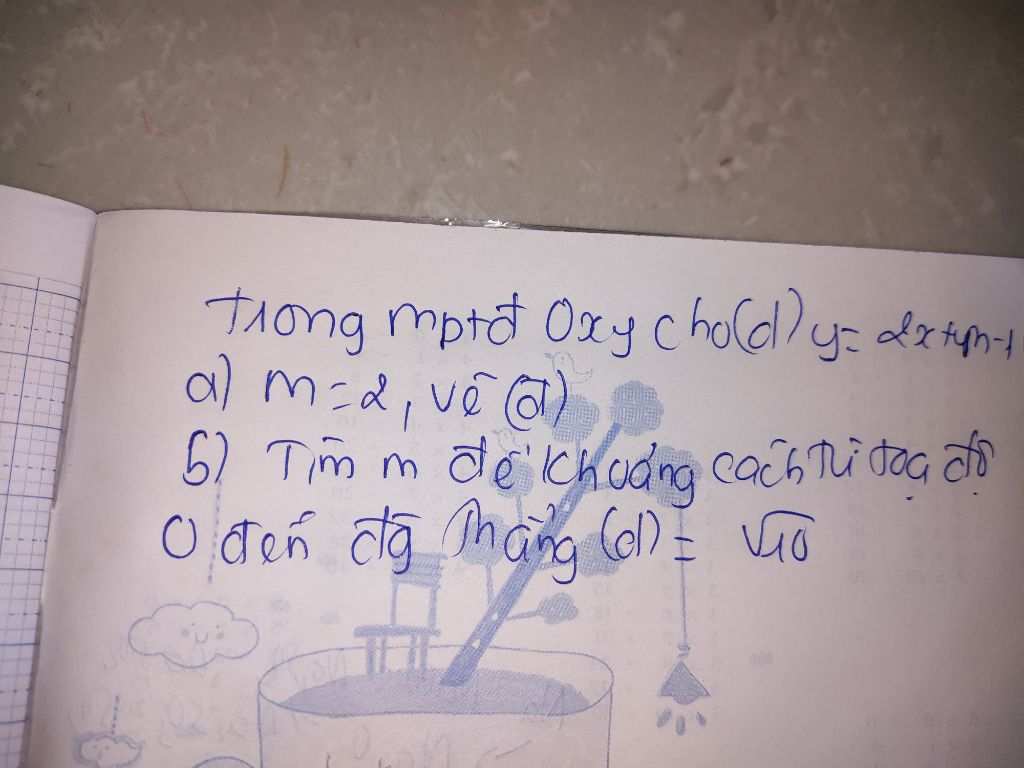 Trong mptđ Oxy cho (d) y= 2x+4m-1
a) m=2, vẽ (d)
b) Tìm m để khoảng cách từ toạ độ
O đến đg thẳng (d) = √10